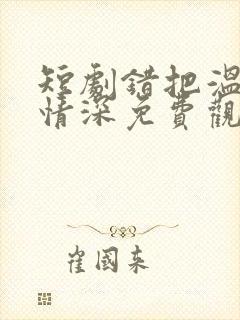 短劇錯把溫
情深免費觀
崔國來